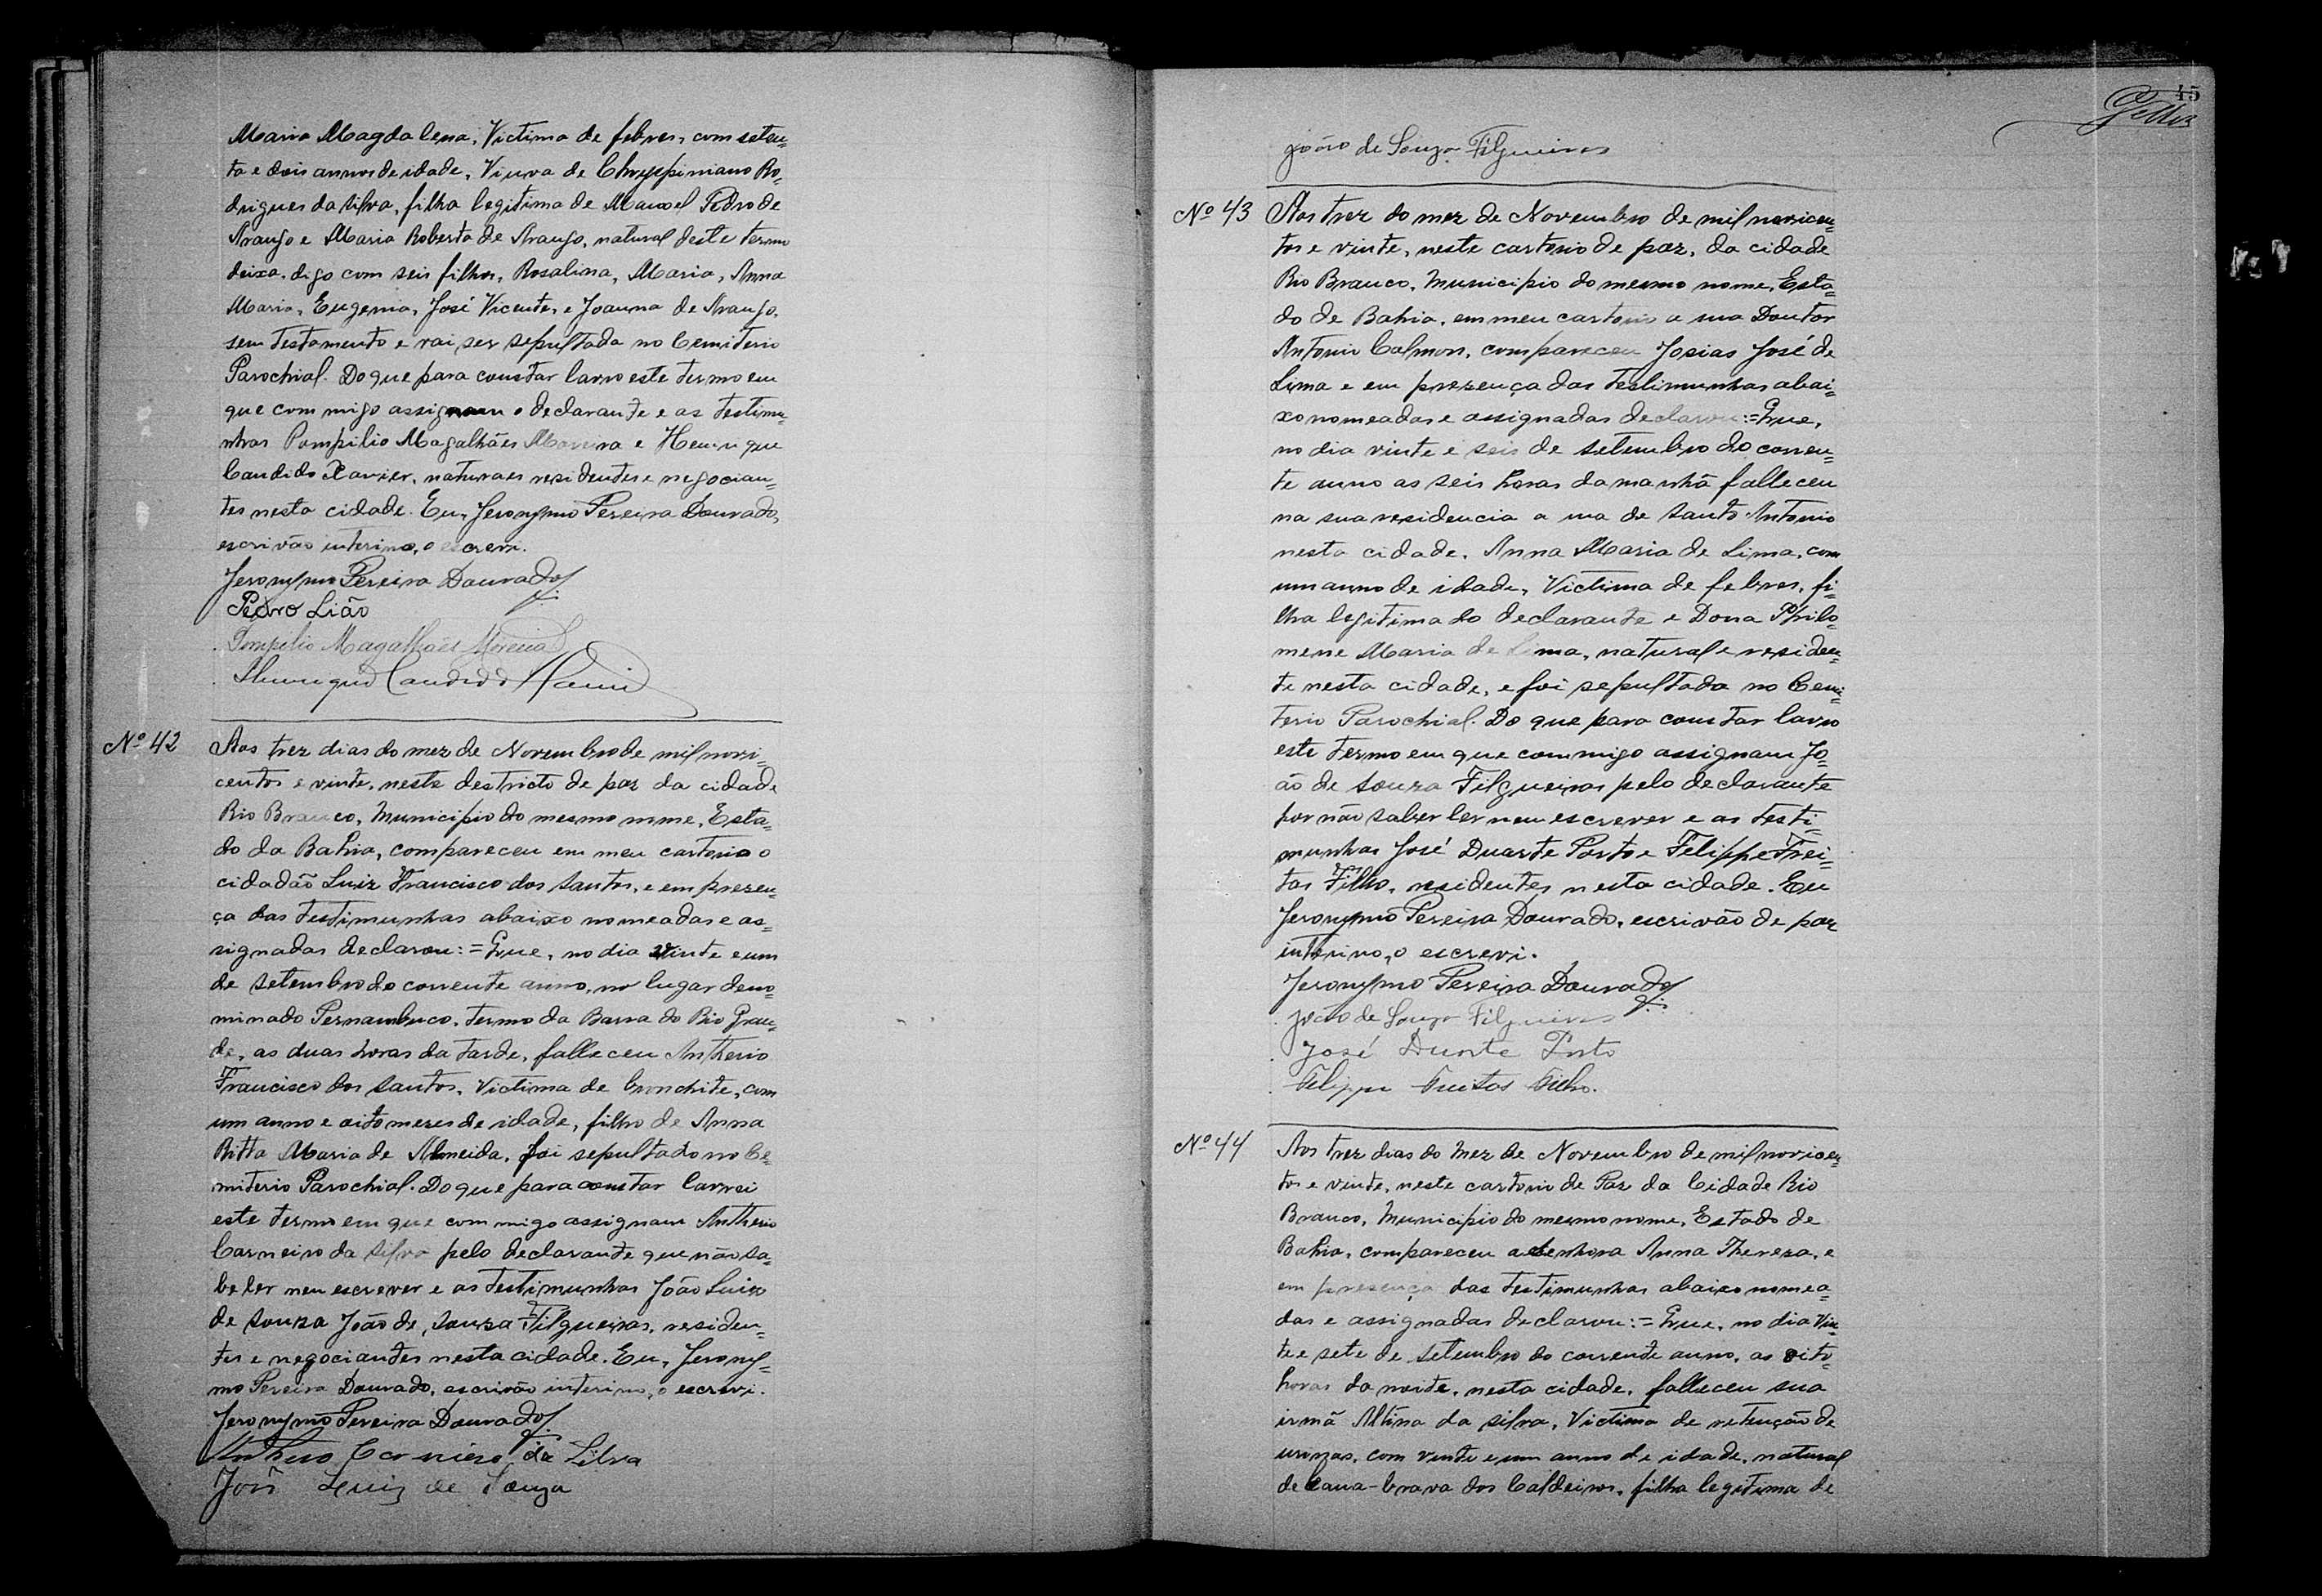 Maria Magdalena, Victima de febres, com seten=
ta e dois annos de idade, Viuva de Chryspiniano Ro=
drigues da Silva, filha legitima de Manoel Pedro de
Araujo e Maria Roberta de Araujo, natural deste termo
deixa, digo com seis filhos, Rosalina, Maria, Anna
Maria, Eugenia, José Vicente, e Joanna de Araujo,
sem testamento e vai ser sepultada no Cemiterio
Parochial. Do que para constar lavro este termo em
que commigo assignam o declarante e as testimu=
nhas Pompilio Magalhães Moreira e Henrique
Candido Xavier, naturaes residentes e negocian=
tes nesta cidade. Eu, Jeronymo Pereira Dourado,
escrivão interino, o escrevi.
Jeronymo Pereira Dourado
Pedro Lião
Pompilio Magalhães Moreira
Henrique Candido Xavier
Nº 42 Aos trez dias do mez de Novembro de mil novi=
centos e vinte, neste destricto de paz da cidade
Rio Branco, Municipio do mesmo nome, Esta=
do da Bahia, compareceu em meu cartorio o
cidadão Luiz Francisco dos Santos, e em prezen=
ça das testimunhas abaixo nomeadas e as=
signadas declarou:=Que, no dia vinte e um
de setembro do corrente anno, no lugar deno=
minado Pernambuco, termo da Barra do Rio Gran=
de, as duas horas da tarde, falleceu Antherio
Francisco dos Santos, Victima de bronchite, com
um anno e oito mezes de idade, filho de Anna
Ritta Maria de Almeida, foi sepultado no Ce=
miterio Parochial. Do que para constar lavrei
este termo em que commigo assignam Antherio
Carneiro da Silva pelo declarante que não sa=
be ler nem escrever e as testimunhas João Luiz
de Souza João de, Souza Filgueiras, residen=
tes e negociantes nesta cidade. Eu, Jerony=
mo Pereira Dourado, escrivão interino, o escrevi.
Jeronymo Pereira Dourado
Antherio Carneiro da Silva
João Luiz de Souza
45
João de Souza Filgueiras
Nº 43 Aos trez do mez de Novembro de mil novicen=
tos e vinte, neste cartorio de paz, da cidade
Rio Branco, Municipio do mesmo nome, Esta=
do de Bahia, em meu cartorio a rua Doutor
Antonio Calmon, compareceu Josias José de
Lima e em prezença das testimunhas abai=
xo nomeadas e assignadas declarou:=Que,
no dia vinte e seis de setembro do corren=
te anno as seis horas da manhã falleceu
na sua residencia a rua de Santo Antonio
nesta cidade, Anna Maria de Lima, com
um anno de idade, Victima de febres, fi=
lha legitima do declarante e Dona Philo=
mene Maria de Lima, natural e residen=
te nesta cidade, e foi sepultada no Cemi=
terio Parochial. Do que para constar lavro
este termo em que commigo assignam Jo=
ão de Souza Filgueiras pelo declarante
por não saber ler nem escrever e as testi=
munhas José Duarte Porto e Felippe Frei=
tas Filho, residentes nesta cidade. Eu
Jeronymo Pereira Dourado, escrivão de paz
interino, o escrevi.
Jeronymo Pereira Dourado
João de Souza Filgueiras
José Duarte Porto
Felippe Freitas Filho.
Nº 44 Aos trez dias do mez de Novembro de mil novicen=
tos e vinte, neste cartorio de Paz da Cidade Rio
Branco, Municipio do mesmo nome, Estado de
Bahia, compareceu a Senhora Anna Thereza, e
em presença das testimunhas abaixo nomea=
das e assignadas declarou:=Que, no dia Vin=
te e sete de Setembro do corrente anno, as oito
horas da noite, nesta cidade, falleceu sua
irmã Altina da Silva, Victima de retenção de
urinas, com vinte e um anno de idade, natural
de Cana-brava dos Caldeiros, filha legitima de